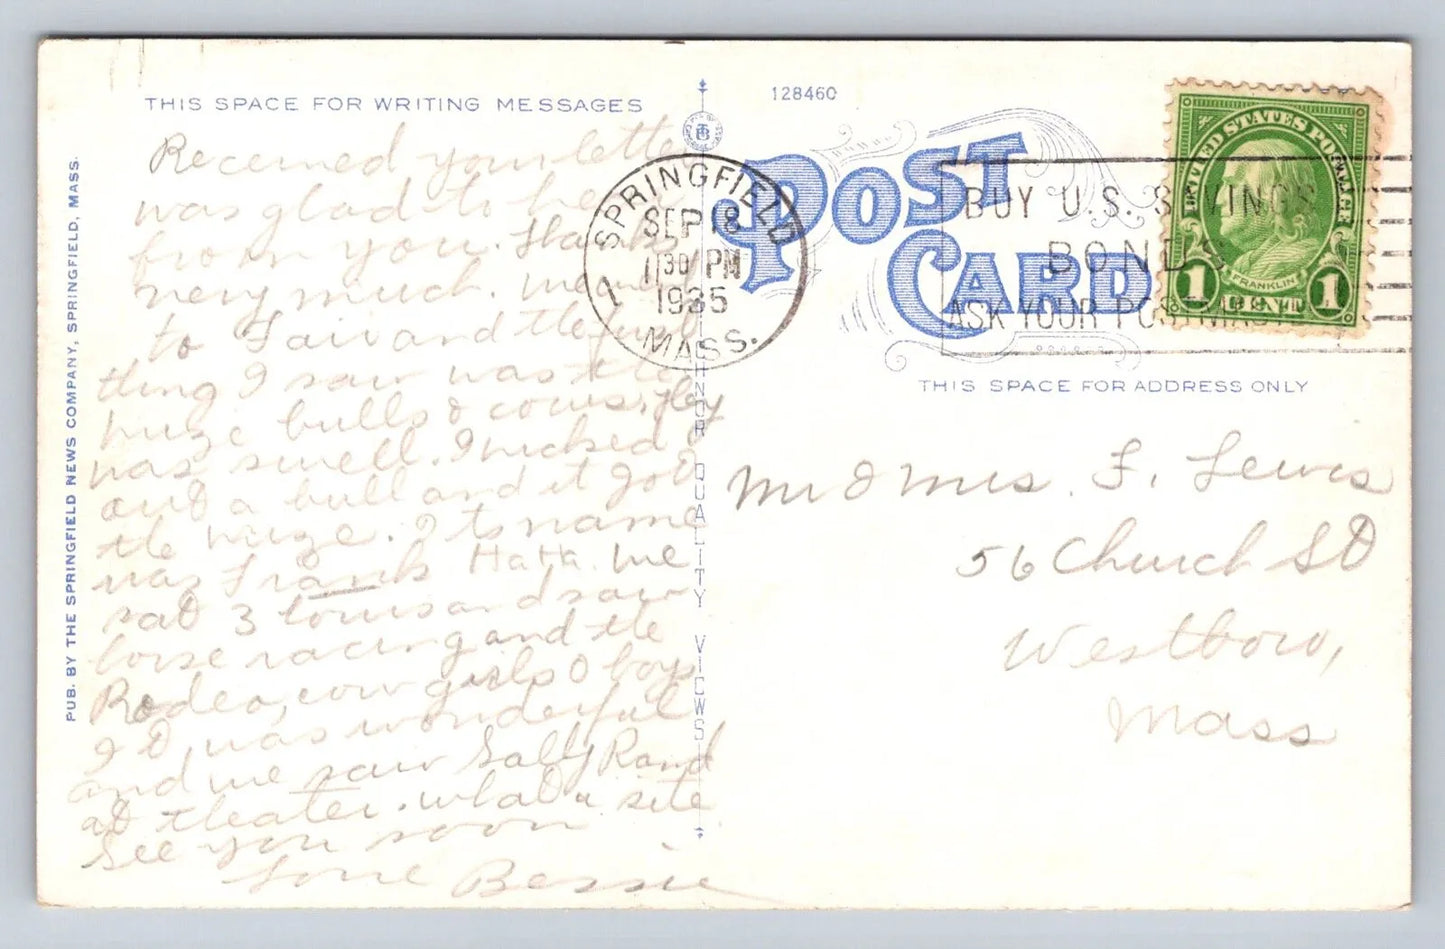 THIS SPACE FOR WRITING MESSAGES
Received your letter
was glad to hear
from you. Thanks
very much. We went
to Fair and the first
thing I saw was the
huge bulls & cows, they
was swell. I picked
out a bull and it got
the prize. Its name
was Frank Hatta. We
sat 3 tours and saw
horse racing and the
Rodeo, cow girls & boys
It was wonderful
and we saw Sally Rand
at theater. What a site
See you soon
Love Bessie
PUB. BY THE SPRINGFIELD NEWS COMPANY, SPRINGFIELD, MASS.
TICHNOR QUALITY VIEWS
128460
POST
CARD
SPRINGFIELD
SEP 18
11 30 PM
1935
1
MASS.
BUY U.S. SAVINGS
BONDS
ASK YOUR POSTMASTER
UNITED STATES POSTAGE
FRANKLIN
1 CENT 1
THIS SPACE FOR ADDRESS ONLY
Mr & Mrs. F. Lewis
56 Church St
Westboro,
Mass